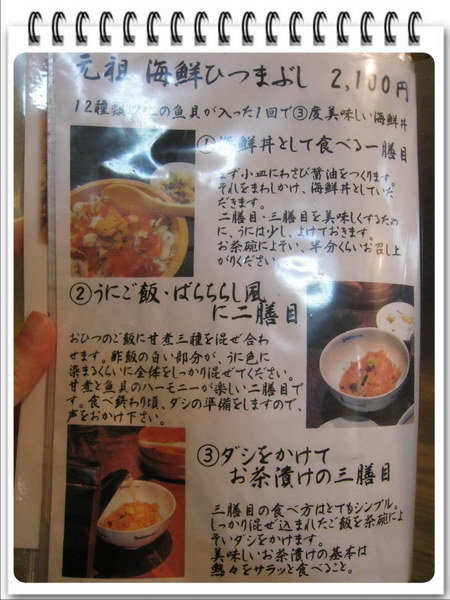 元祖 海鮮ひつまぶし 2,100円
12種類以上の魚貝が入った1回で③度美味しい海鮮丼
①海鮮丼として食べる一膳目
まず小皿にわさび醤油をつくります。
それをまわしかけ、海鮮丼としていた
だきます。
二膳目・三膳目を美味しくするため
に、うには少し、よけておきます。
お茶碗によそい、半分くらいお召し上
がりください
②うにご飯・ばららちらし風
に二膳目
おひつのご飯に甘煮三種を混ぜ合わ
せます。酢飯の白い部分が、うに色に
染まるくらいに全体をしっかり混ぜてください。
甘煮と魚貝のハーモニーが楽しい二膳目で
す。食べ終わり頃、ダシの準備をしますので、
声をおかけ下さい。
③ダシをかけて
お茶漬けの三膳目
三膳目の食べ方はとてもシンプル。
しっかり混ぜ込まれたご飯を茶碗によ
そいダシをかけます。
美味しいお茶漬けの基本は
熱々をサラッと食べること。